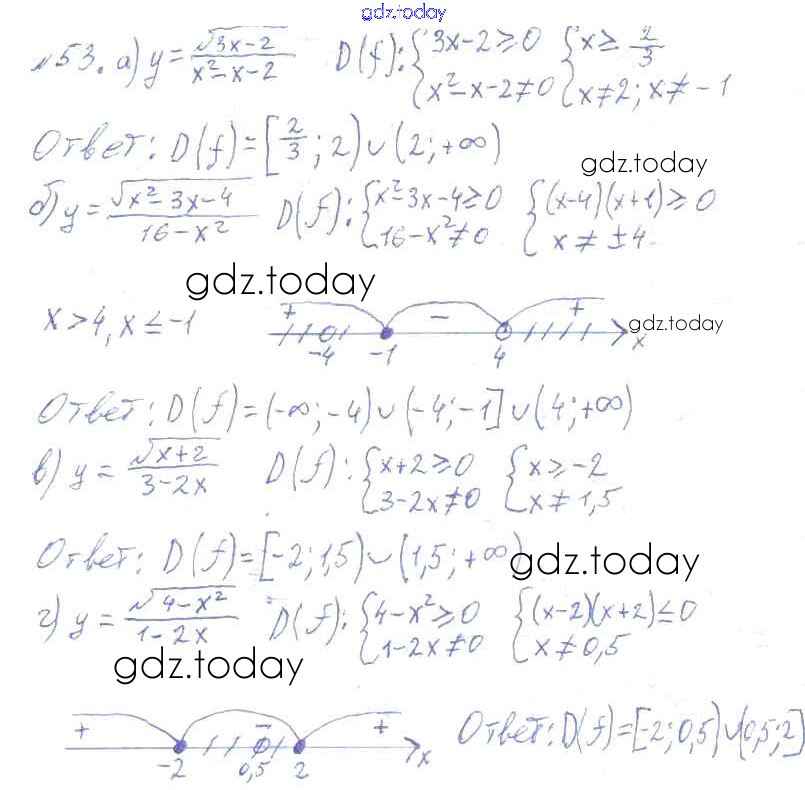 gdz.today
№53. а) y = √(3x-2)/(x²-x-2) D(f): {3x-2≥0 {x≥ 2/3
x²-x-2≠0 x≠2; x≠-1
Ответ: D(f)=[2/3; 2)∪(2;+∞)
gdz.today
б) y = √(x²-3x-4)/(16-x²) D(f): {x²-3x-4≥0 {(x-4)(x+1)≥0
16-x²≠0 x≠±4
gdz.today
x>4, x≤-1 + − + gdz.today
-4 -1 4 x
Ответ: D(f)=(-∞;-4)∪(-4;-1]∪(4;+∞)
в) y = √(x+2)/(3-2x) D(f): {x+2≥0 {x≥-2
3-2x≠0 x≠1,5
Ответ: D(f)=[-2;1,5)∪(1,5;+∞)
gdz.today
г) y = √(4-x²)/(1-2x) D(f): {4-x²≥0 {(x-2)(x+2)≤0
1-2x≠0 x≠0,5
gdz.today
+ − + Ответ: D(f)=[-2;0,5)∪(0,5;2]
-2 0,5 2 x